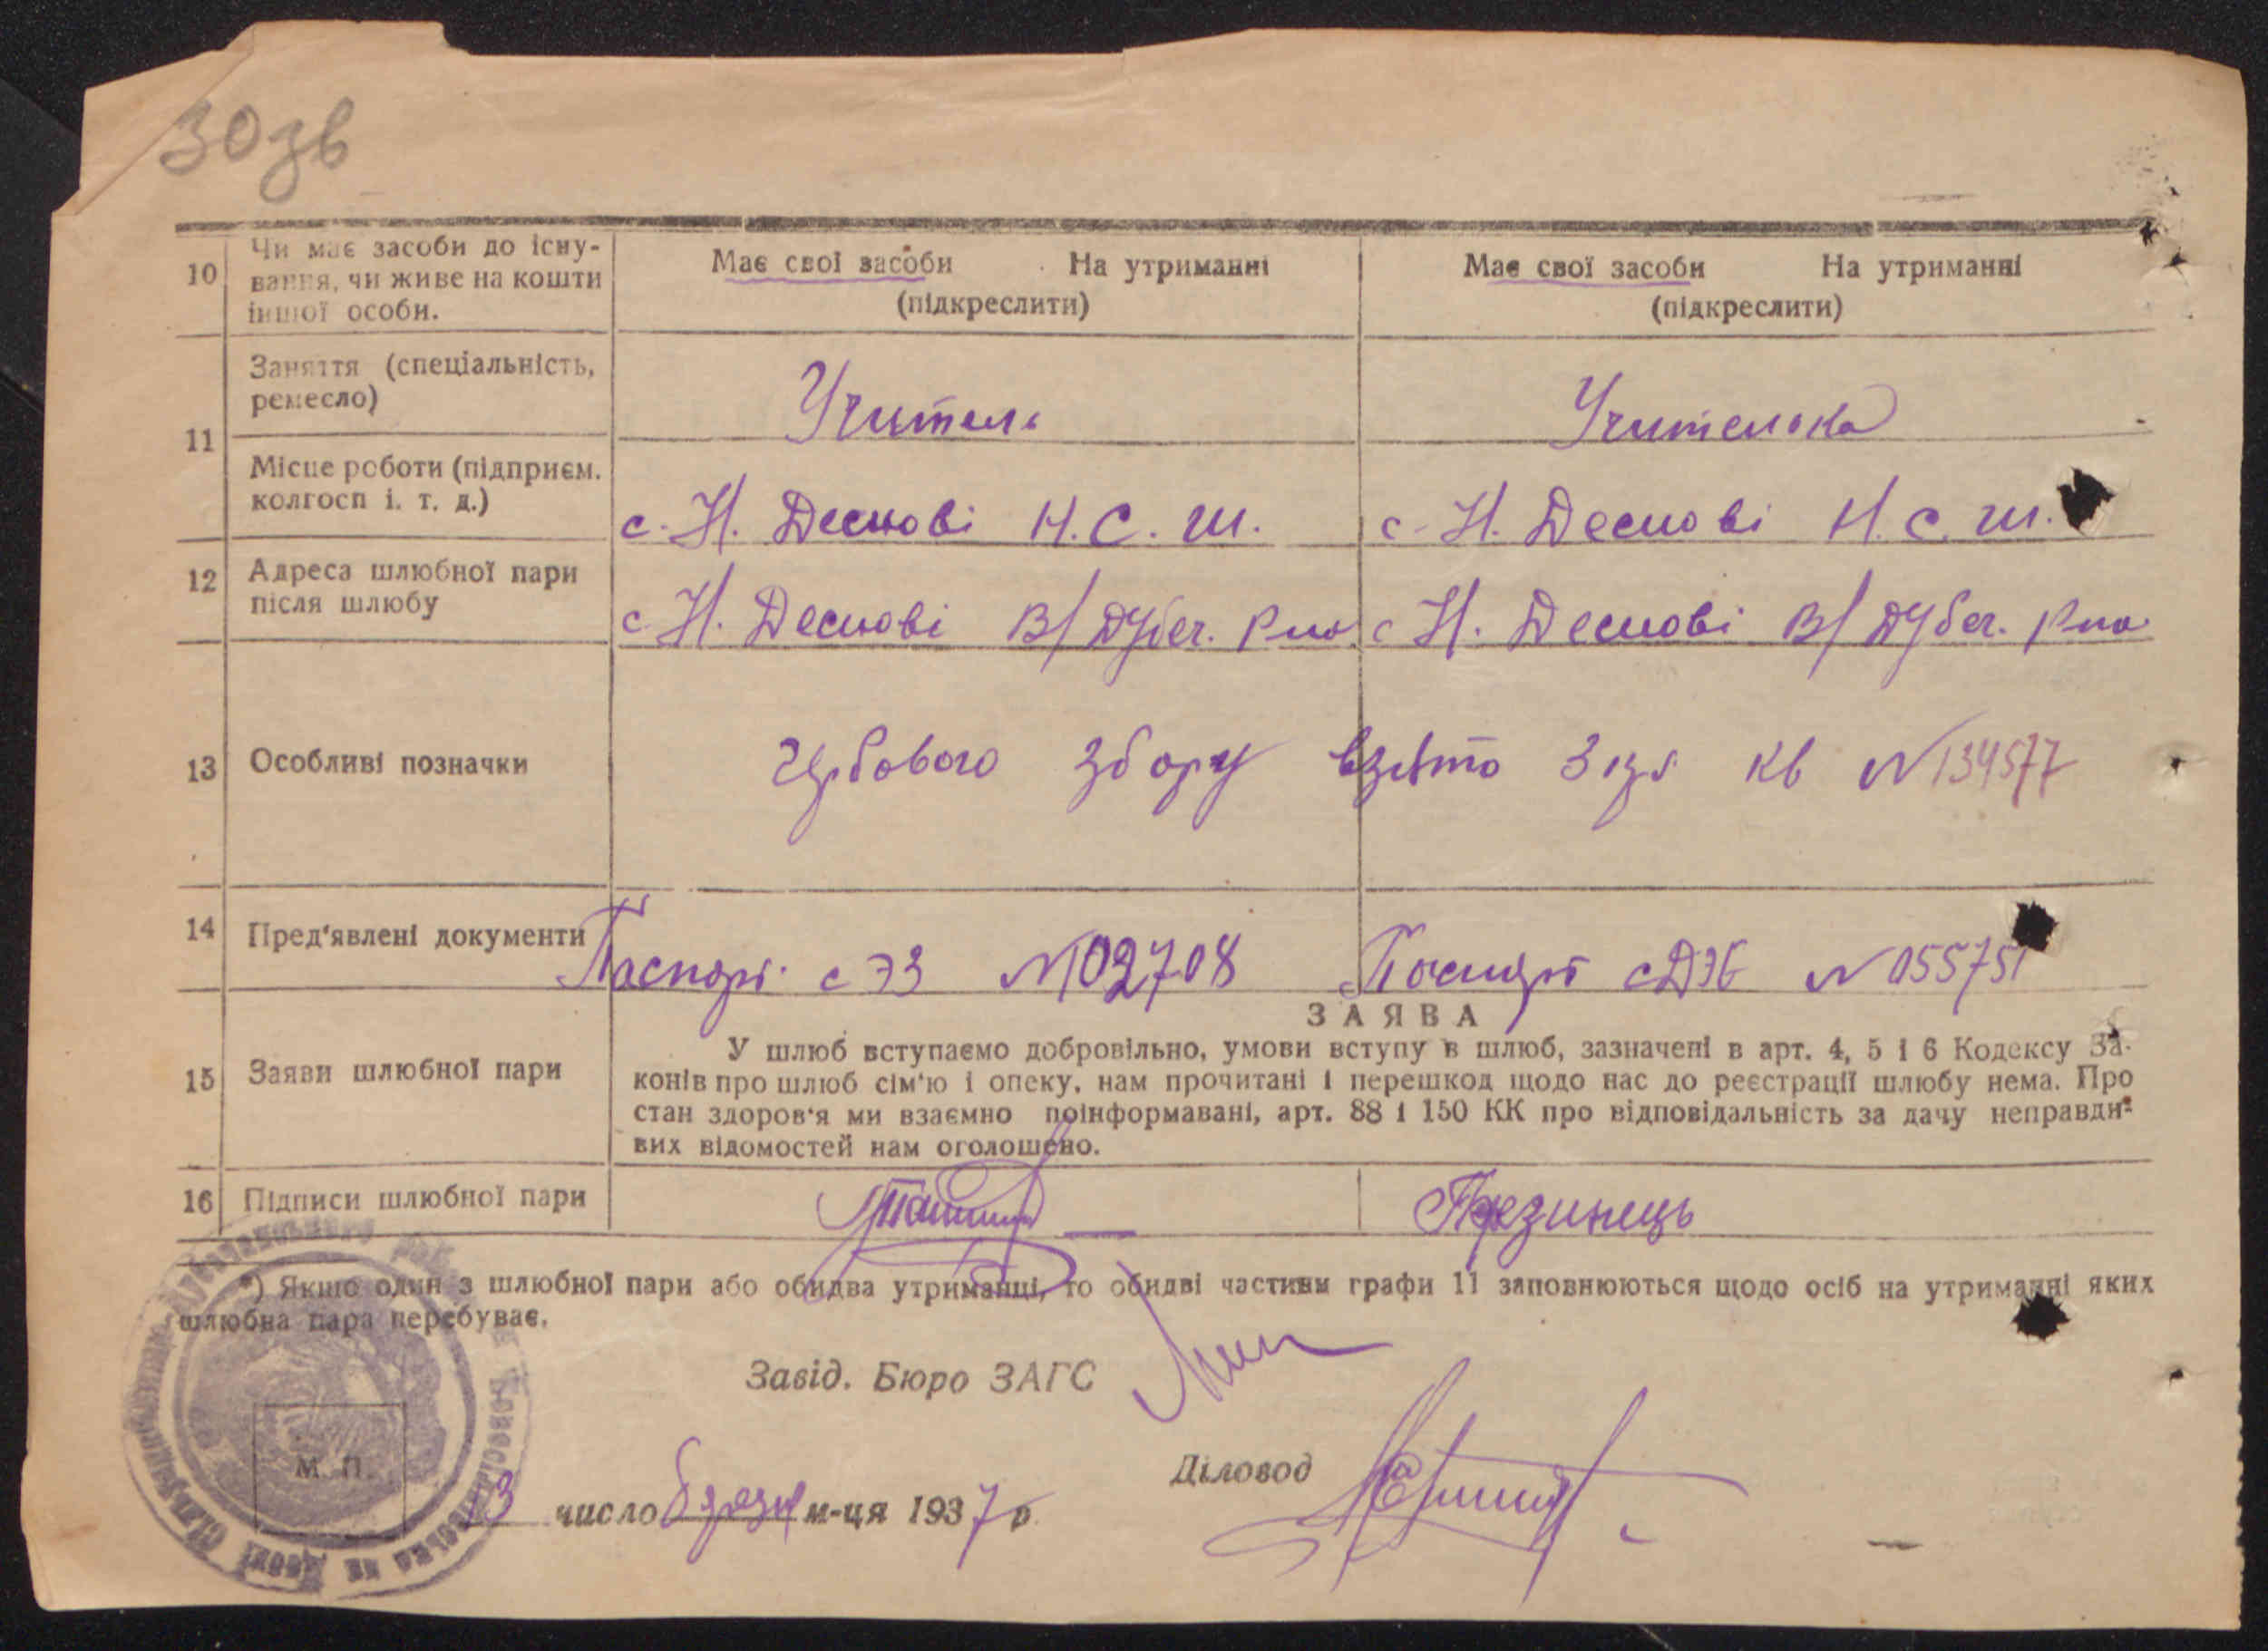 30зв
10 Чи має засоби до існу-
вання, чи живе на кошти
іншої особи.
Має свої засоби На утриманні
(підкреслити)
Має свої засоби На утриманні
(підкреслити)
11 Заняття (спеціальність,
ремесло)
Учитель
Учителька
Місце роботи (підприєм.
колгосп і. т. д.)
с. Н. Деснові Н. С. Ш.
с. Н. Деснові Н. С. Ш.
12 Адреса шлюбної пари
після шлюбу
с. Н. Деснові В/Дубеч. Р-на
с. Н. Деснові В/Дубеч. Р-на
13 Особливі позначки
збору взято 3 кв № 134577
14 Пред'явлені документи
Паспорт с ЭЗ № 102708
Паспорт № 055751
15 Заяви шлюбної пари
ЗАЯВА
У шлюб вступаємо добровільно, умови вступу в шлюб, зазначені в арт. 4, 5 і 6 Кодексу За-
конів про шлюб сім'ю і опеку, нам прочитані і перешкод щодо нас до реєстрації шлюбу нема. Про
стан здоров'я ми взаємно поінформавані, арт. 88 і 150 КК про відповідальність за дачу неправди-
вих відомостей нам оголошено.
16 Підписи шлюбної пари
*) Якщо один з шлюбної пари або обидва утриманці, то обидві частини графи 11 заповнюються щодо осіб на утриманні яких
шлюбна пара перебуває.
Завід. Бюро ЗАГС
Діловод
М. П.
13 число березня м-ця 1937 р.